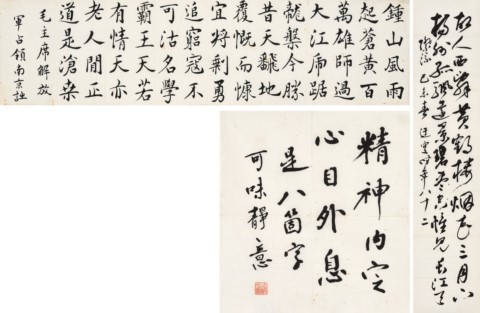 鍾山風雨
起蒼黄百
萬雄師過
大江虎踞
龍槃今勝
昔天翻地
覆慨而慷
宜將剩勇
追窮寇不
可沽名學
霸王天若
有情天亦
老人間正
道是滄桑
毛主席解放
軍占領南京詩
故人西辭黄鶴樓烟花三月下
揚州孤帆遠景碧空盡惟見長江天
際流 乙未春 時年八十二
精神内定
心目外息
是八箇字
可味靜意